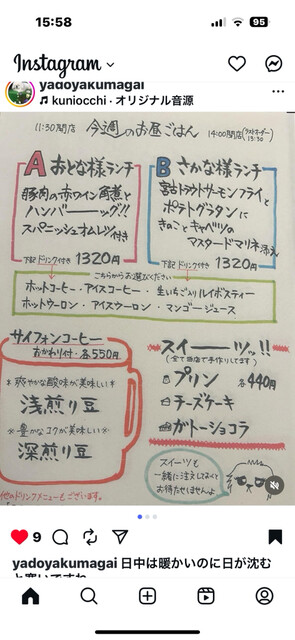 15:58
95
Instagram
yadoyakumagai
kuniocchi・オリジナル音源
11:30開店 今週のお昼ごはん 14:00閉店(ラストオーダー13:30)
A おとな様ランチ
豚肉の赤ワイン角煮と
ハンバーーッグ!!
スパニッシュオムレツ付き
下記ドリンク付き 1320円
B さかな様ランチ
宮古トラウトサーモンフライと
ポテトグラタンに
きのことキャベツの
マスタードマリネ添え
下記ドリンク付き 1320円
こちらからお選びください
ホットコーヒー・アイスコーヒー・生いちご入りルイボスティー
ホットウーロン・アイスウーロン・マンゴージュース
サイフォンコーヒー
おかわり付・各550円
*爽やかな酸味が美味しい*
浅煎り豆
※豊かなコクが美味しい※
深煎り豆
他のドリンクメニューもございます。
スイーーツッ!!
(全て当店で手作りしてます)
プリン 各440円
チーズケーキ
ガトーショコラ
スイーツも
一緒に注文しておくと
お待たせしませんよ
9
yadoyakumagai 日中は暖かいのに日が沈む